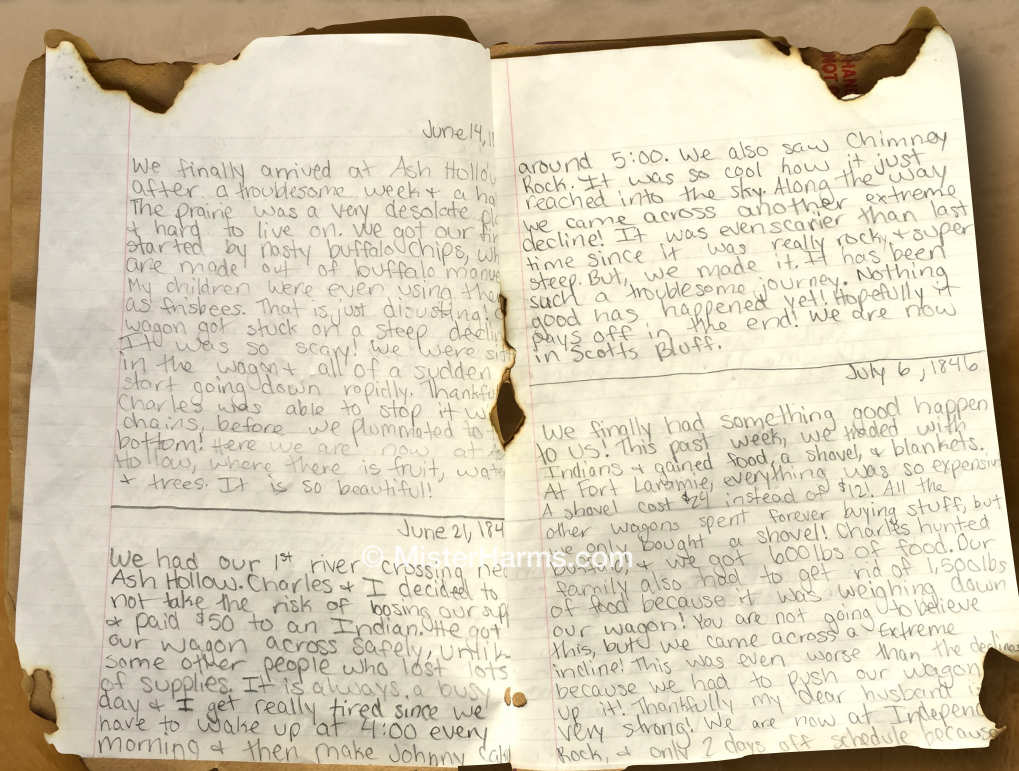 June 14, 1
We finally arrived at Ash Hollow
after a troublesome week + a ha
The prairie was a very desolate pl
+ hard to live on. We got our fir
started by nasty buffalo chips, wh
are made out of buffalo manu
My children were even using the
as frisbees. That is just disusting!
wagon got stuck on a steep declin
It was so scary! We were sitt
in the wagon + all of a sudden
start going down rapidly. Thankfu
Charles was able to stop it w
chains, before we plummated to t
bottom! Here we are now at A
Hollow, where there is fruit, wate
+ trees. It is so beautiful!
June 21, 184
We had our 1st river crossing ne
Ash Hollow. Charles + I decided to
not take the risk of losing our sup
+ paid $50 to an Indian. He got
our wagon across safely, unlik
some other people who lost lots
of supplies. It is always a busy
day + I get really tired since we
have to wake up at 4:00 every
morning + then make Johnny cak
HAN
NOT
around 5:00. We also saw Chimney
Rock. It was so cool how it just
reached into the sky. Along the way
we came across another extreme
decline! It was even scarier than last
time since it was really rocky, + super
steep. But, we made it. It has been
such a troublesome journey. Nothing
good has happened yet! Hopefully it
pays off in the end! We are now
in Scotts Bluff.
July 6, 1846
We finally had something good happen
to us! This past week, we traded with
Indians + gained food, a shovel, + blankets.
At Fort Laramie, everything was so expensiv
A shovel cost $24 instead of $12! All the
other wagons spent forever buying stuff, but
we only bought a shovel! Charles hunted
buffalo, + we got 600lbs of food. Our
family also had to get rid of 1,500lbs
of food because it was weighing down
our wagon! You are not going to believe
this, but we came across a extreme
incline! This was even worse than the decline
because we had to push our wagon
up it! Thankfully my dear husband is
very strong! We are now at Independ
Rock, + only 2 days off schedule because
© MisterHarms.com